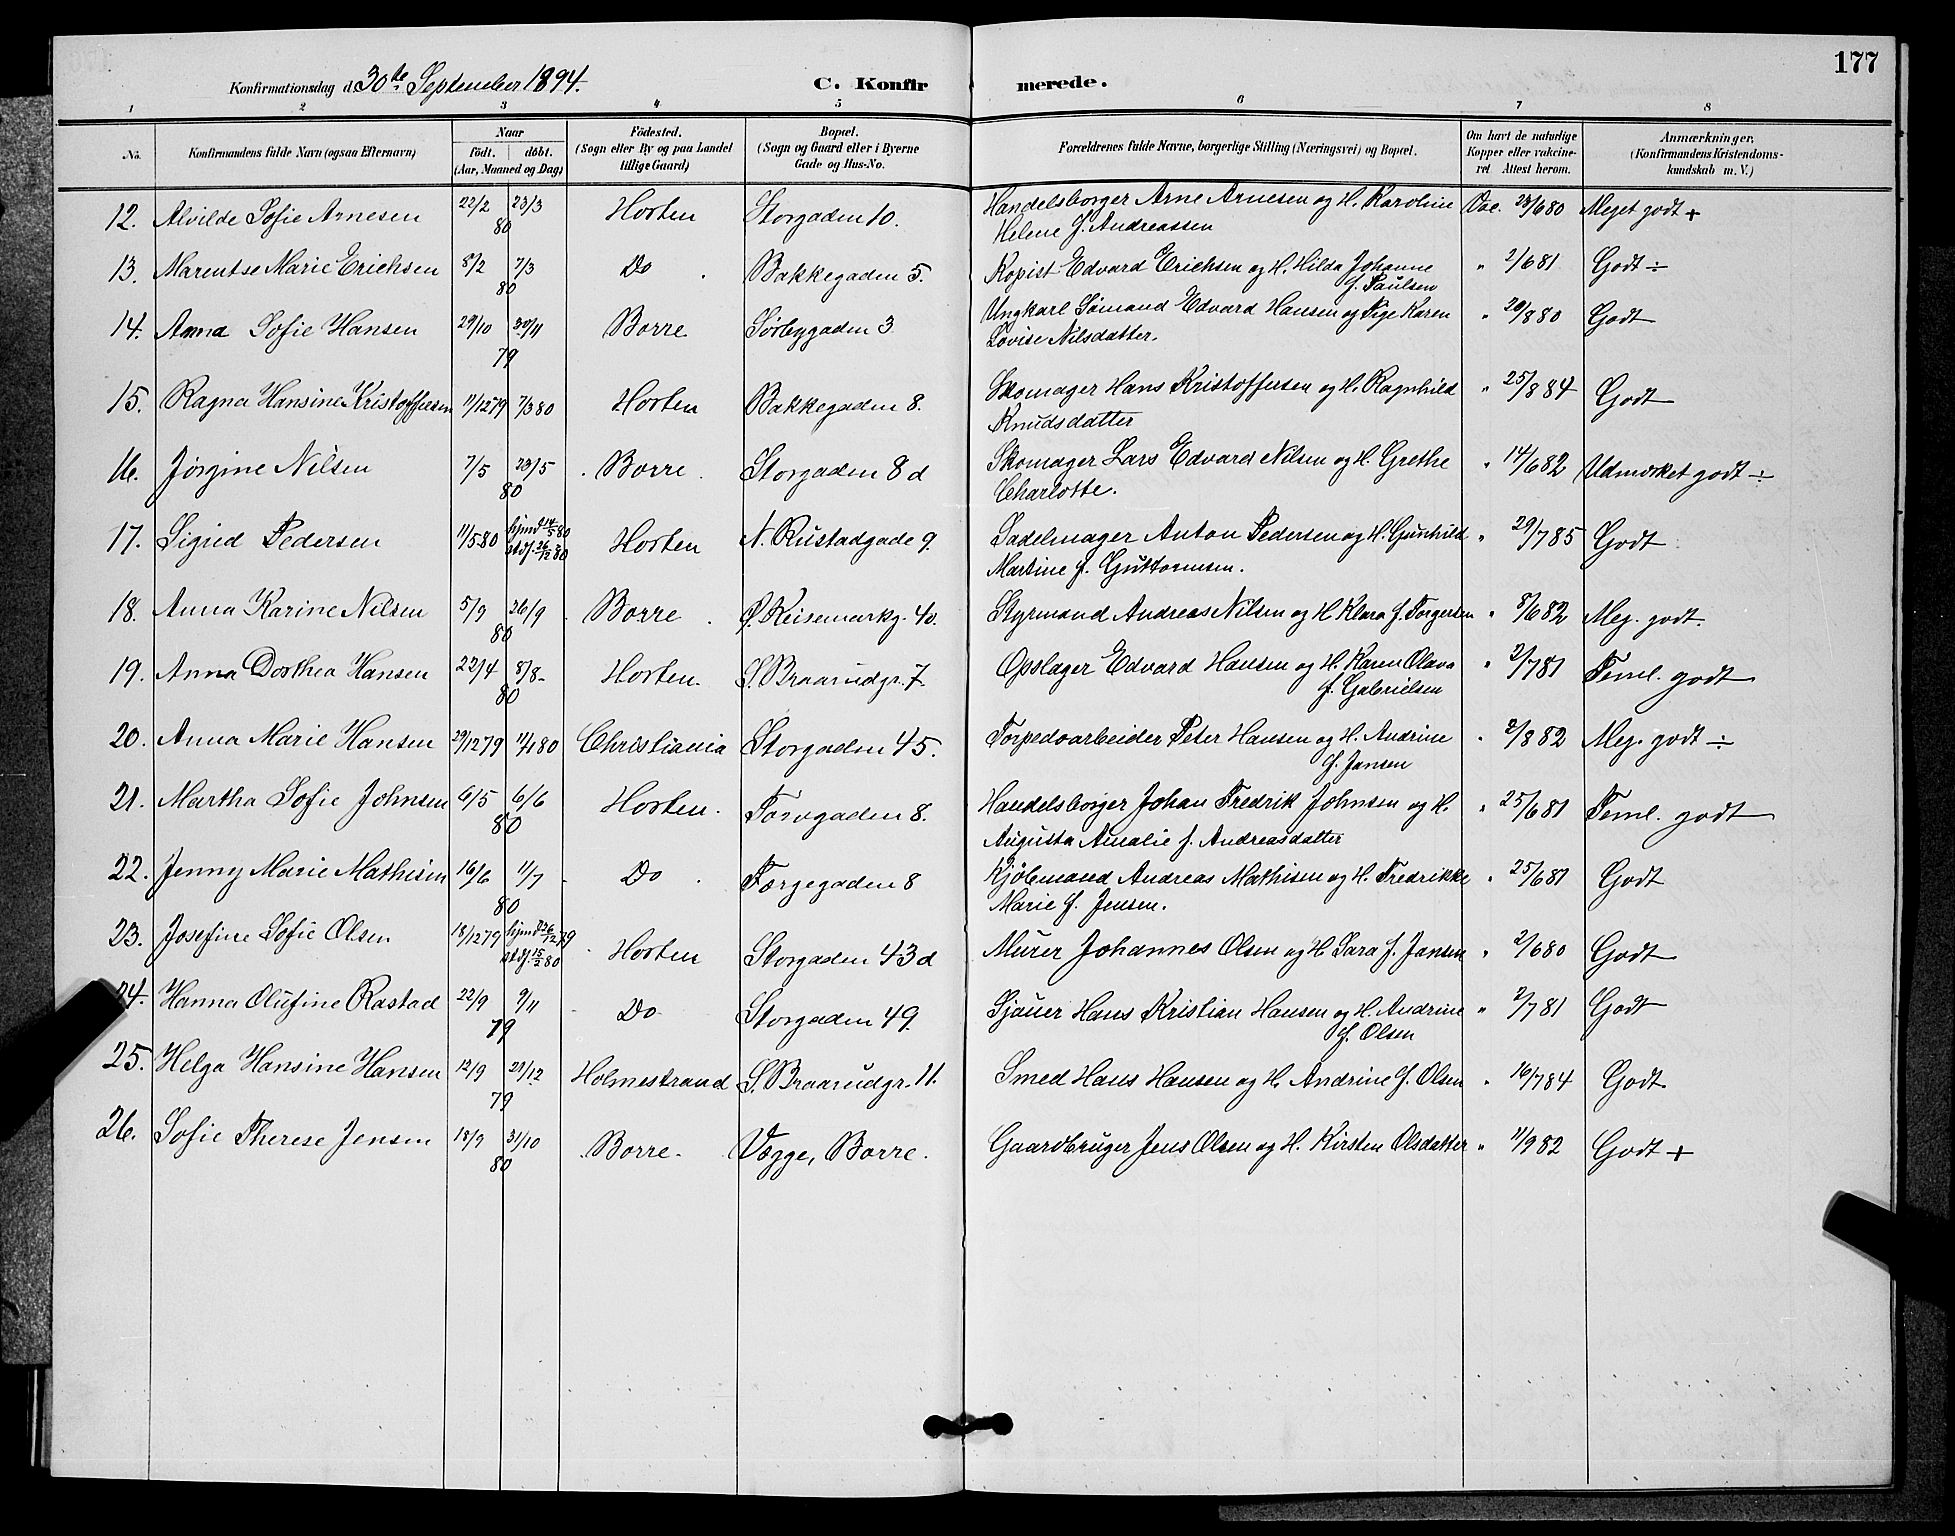 177
Konfirmationsdag d. 30te September 1894. C. Konfirmerede.
1 2 3 4 5 6 7 8
No. Konfirmandens fulde Navn (ogsaa Efternavn) Naar født. døbt. (Aar, Maaned og Dag) Fødested. (Sogn eller By og paa Landet tillige Gaard) Bopæl. (Sogn og Gaard eller i Byerne Gade og Hus-No. Forældrenes fulde Navne, borgerlige Stilling (Næringsvei) og Bopæl. Om havt de naturlige Kopper eller vakcineret Attest herom. Anmærkninger, (Konfirmandens Kristendomskundskab m. V.)
12. Alvilde Sofie Arnesen 22/2 23/3 80 Horten Storgaden 10. Handelsborger Arne Arnesen og H. Karoline Vac. 23/6 80 Meget godt +
Helene f. Andreassen
13. Marentse Marie Erichsen 8/2 7/3 80 Do. Bakkegaden 5. Kopist Edvard Erichsen og H. Hilda Johanne " 2/6 81 Godt ÷
f. Paulsen
14. Anna Sofie Hansen 29/10 30/11 79 Borre Sørbygaden 3 Ungkarl Sømand Edvard Hansen og Pige Karen " 20/8 80 Godt
Lovise Nilsdatter.
15. Ragna Hansine Kristoffersen 11/12 79 7/3 80 Horten Bakkegaden 8. Skomager Hans Kristoffersen og H. Ragnhild " 25/8 84 Godt
Knudsdatter
16. Jørgine Nilsen 7/5 23/5 80 Borre Storgaden 8 d Skomager Lars Edvard Nilsen og H. Grethe " 14/6 82 Udmærket godt ÷
Charlotte.
17. Sigrid Pedersen 11/5 80 hjmd 14/5 80 stdf. 26/12 80 Horten N. Rustadgade 9. Sadelmager Anton Pedersen og H. Gunhild " 29/7 85 Godt
Martine f. Guttormsen.
18. Anna Karine Nilsen 5/9 26/9 80 Borre Ø. Keisemarkg. 40. Styrmand Andreas Nilsen og H Klara f. Torgersen " 8/6 82 Meg. godt.
19. Anna Dorthea Hansen 22/4 8/8 80 Horten. S. Braarudgr. 7. Opslager Edvard Hansen og H. Karen Olava " 2/7 81 Teml. godt
f. Gabrielsen
20. Anna Marie Hansen 29/12 79 11/4 80 Christiania Storgaden 45. Torpedoarbeider Peter Hansen og H. Andrine " 2/8 82 Meg. godt ÷
f. Jansen
21. Martha Sofie Johnsen 6/5 6/6 80 Horten. Torvgaden 8. Handelsborger Johan Fredrik Johnsen og H. " 25/6 81 Teml. godt
Augusta Amalie f. Andreasdatter
22. Jenny Marie Mathisen 16/6 11/7 80 Do Færgegaden 8 Kjøbmand Andreas Mathisen og H. Fredrikke " 25/6 81 Godt
Marie f. Jensen.
23. Josefine Sofie Olsen 18/12 79 hjmd 26/12 79 stdf. 15/2 80 Horten Storgaden 43 d Murer Johannes Olsen og H Sara f. Jansen " 2/6 80 Godt
24. Hanna Olufine Rastad 22/9 9/11 79 Do Storgaden 49. Sjauer Hans Kristian Hansen og H. Andrine " 2/7 81 Godt
f. Olsen
25. Helga Hansine Hansen 12/9 29/12 79 Holmestrand S. Braarudgr. 11. Smed Hans Hansen og H. Andrine f. Olsen " 16/7 84 Godt
26. Sofie Therese Jensen 18/9 31/10 80 Borre. Vægge, Borre. Gaardbruger Jens Olsen og H. Kirsten Olsdatter " 11/9 82 Godt +